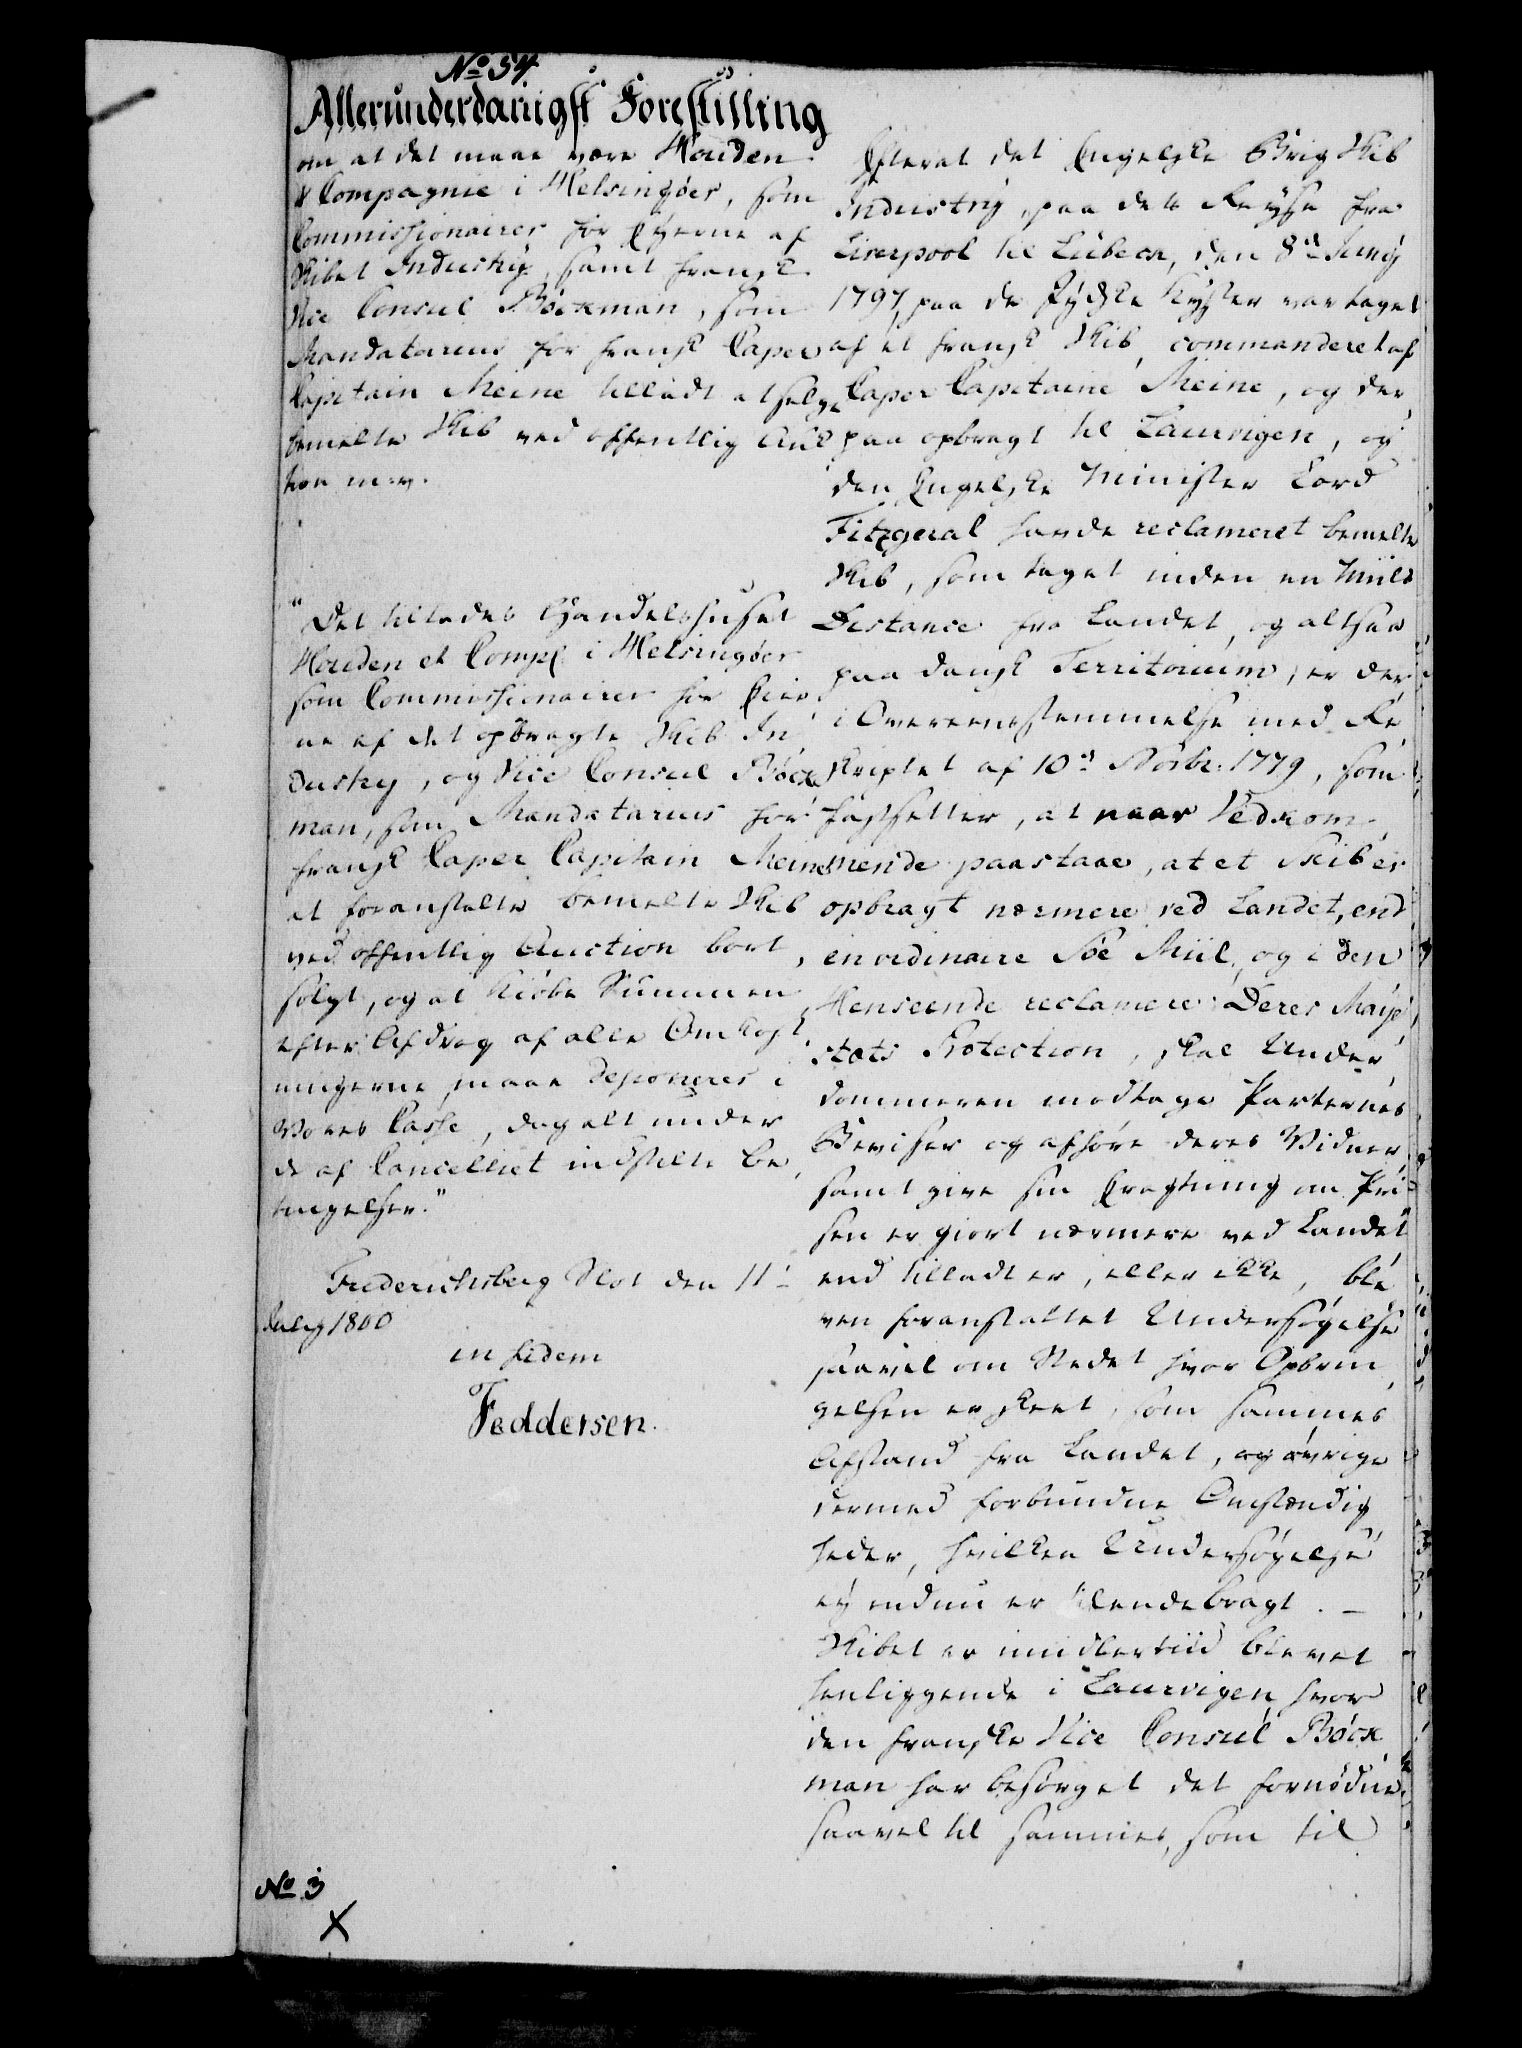 No 54
Allerunderdanigst Forestilling
om at det maae være Houden
& Compagnie i Helsingöer, som
Commissionairer for Eyerne af
Skibet Industry, samt fransk
Vice Consul Böckman, som
Mandatarius for fransk Caper
Capitain Meine tilladt at sælge
bemelte Skib ved offentlig Auk
tion m: v.
"Det tillades Handelshuset
Houden et Comp: i Helsingöer
som Commissionairer for Eier
ne af det opbragte Skib In
dustry, og Vice Consul Böck
man, som Mandatarius for
fransk Caper Capitain Meine
at foranstalte bemelte Skib
ved offentlig Auction bort
solgt, og at Kiöbe Summen
efter Afdrag af alle Omkost
ningerne, maae deponeres i
Vores Casse, dog alt under
de af Cancelliet indstilte Be
tingelser."
Friderichsberg Slot den 11te
July 1800
in fidem
Feddersen.
Efterat det Engelske Brig Skib
Industry, paa dets Reyse fra
Liverpool til Lübeck, den 8de Juny
1797, paa de Jydske Kyster var taget
af et fransk Skib, commanderet af
Caper Capitaine Meine, og der
paa opbragt til Laurvigen, og
den Engelske Minister Lord
Fitzgeral havde reclameret bemelte
Skib, som taget inden en Miils
Distance fra Landet, og altsaa
paa dansk Territorium, er der
i Overeensstemmelse med Re
skriptet af 10de Novbr. 1779, som
fastsetter, at naar Vedkom
mende paastaae, at et Skib er
opbragt nærmere ved Landet, end
en ordinaire Söe Miil, og i den
Henseende reclamere Deres Maje
stæts Protection, skal Under
dommeren modtage Parternes
Beviser og afhöre deres Vidner
samt give sin Eragtning om Pri
sen er giort nærmere ved Landet
end tilladt er, eller ikke, ble
ven foranstaltet Undersögelse
saavel om Stedet hvor Opbrin
gelsen er skeet, som sammes
Afstand fra Landet, og övrige
dermed forbundne Omstændig
heder, hvilken Undersögelse
ey endnu er tilendebragt. –
Skibet er imidlertiid blevet
henliggende i Laurvigen, hvor
den franske Vice Consul Böck
man har besörget det fornödne
saavel til sammes, som til
No 3
X